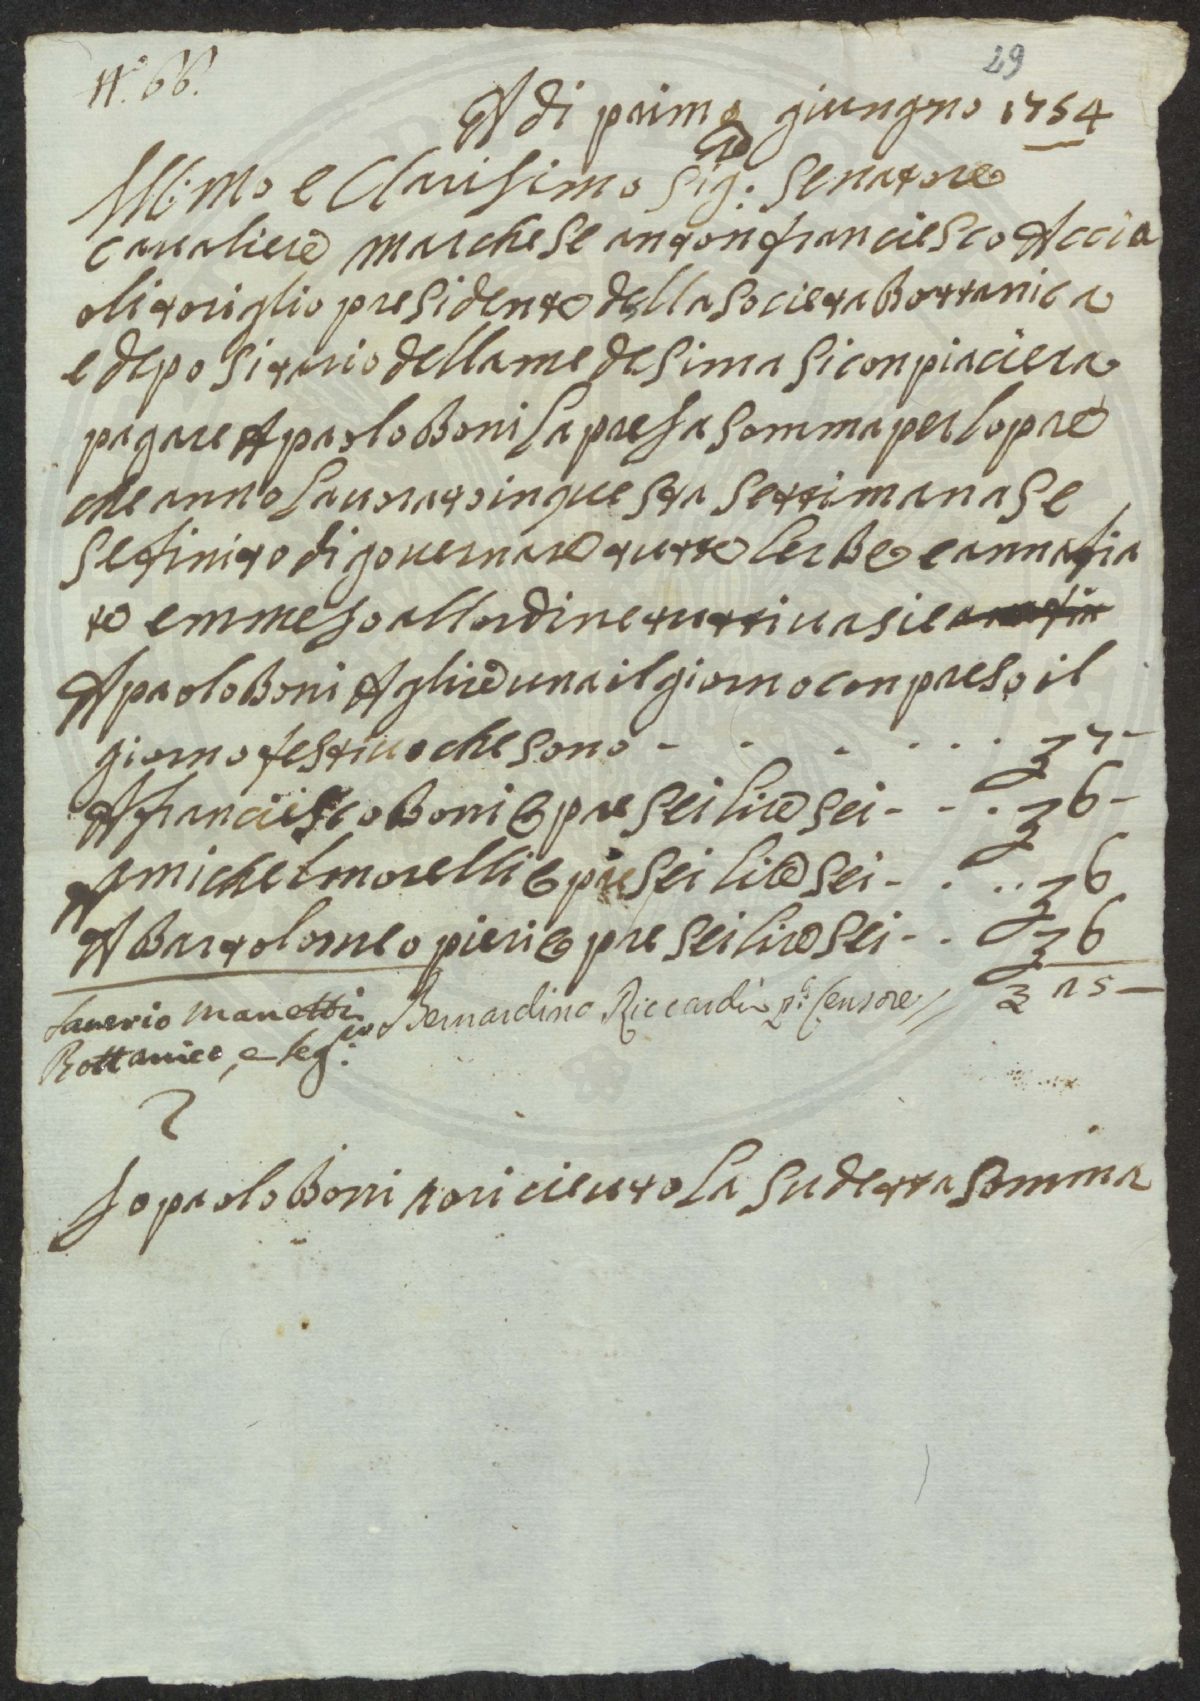 N.° 66.
29
A di primo giungno 1754
Ill:mo e Clarisimo Sig:re Senatore
Cavaliere Marchese anton franciesco Accia
oli toriglio presidente della Societa Bottanica
e depositario della medesima si conpiaciera
pagare A paolo Boni la presa somma per lopre
che anno lavorato in questa settimana se
se finito di governare tutte lerbe e annafia
te emmeso allordine tutti i vasi e annafia
A paolo Boni A glire una il giorno conpreso il
giorno festivo che sono - - - - - - 7 -
A franciesco Boni E pre sei lire sei - - - 6 -
A michel morelli E pre sei lire sei - - - 6
A Bartolomeo pieri E pre sei lire sei - - 6
25 -
Saverio Manetti
Bottanico, e Seg:rio
Bernardino Riccardi p:o Censore
Io paolo Boni o ricieuto la sudetta somma